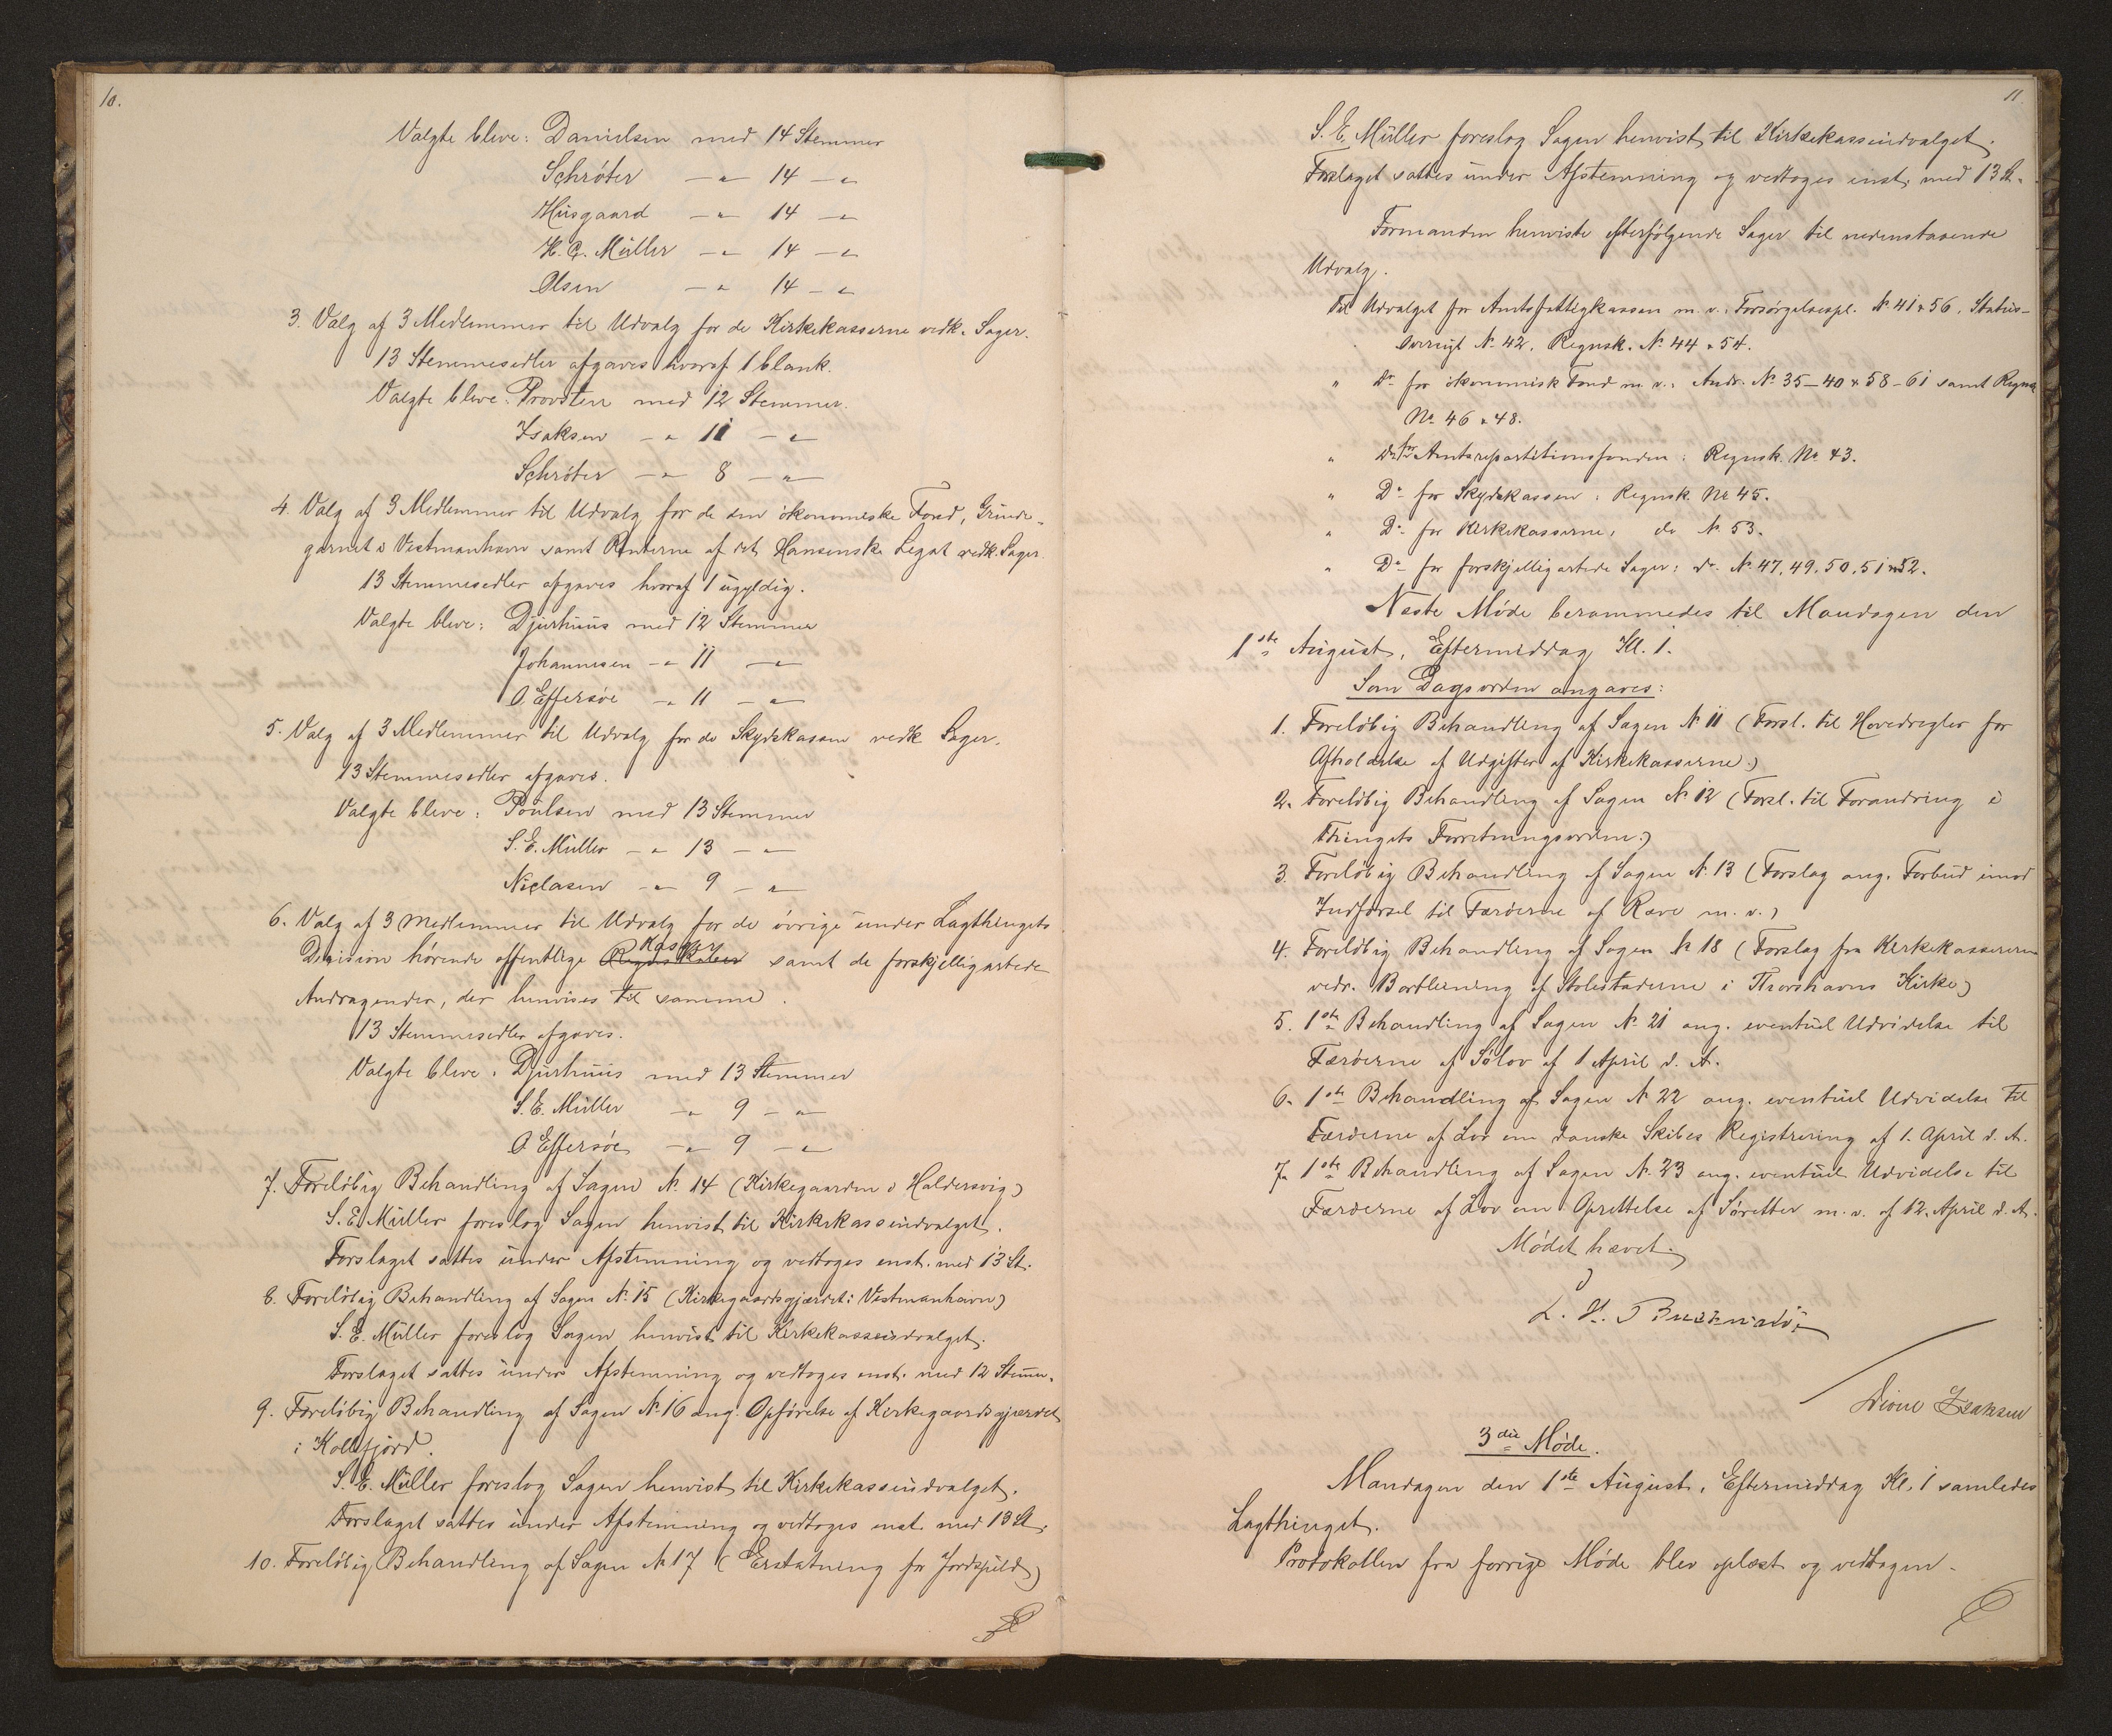 10.
Valgte bleve: Danielsen med 14 Stemmer
Schrøter — " — 14 — "
Husgaard — " — 14 — "
H. C. Müller — " — 14 — "
Olsen — " — 14 — "
3. Valg af 3 Medlemmer til Udvalg for de Kirkekasserne vedk. Sager.
13 Stemmesedler afgaves hvoraf 1 blank.
Valgte bleve: Provsten med 12 Stemmer.
Isaksen — " — 11 — "
Schrøter — " — 8 — "
4. Valg af 3 Medlemmer til Udvalg for de den økonomiske Fond, Grinde-
garnet i Vestmanhavn samt Renterne af det Hansenske Legat vedk. Sager.
13 Stemmesedler afgaves hvoraf 1 ugyldig.
Valgte bleve: Djurhuus med 12 Stemmer
Johannesen — " — 11 — "
O Effersøe — " — 11 — "
5. Valg af 3 Medlemmer til Udvalg for de Skydskassen vedk Sager.
13 Stemmesedler afgaves.
Valgte bleve: Poulsen med 13 Stemmer
S. E. Müller — " — 13 — "
Niclasen — " — 9 — "
6. Valg af 3 Medlemmer til Udvalg for de øvrige under Lagthingets
Kasser
Decision hørende offentlige Regnskaber samt de forskjelligartede
Andragender, der henvises til samme.
13 Stemmesedler afgaves.
Valgte bleve: Djurhuus med 13 Stemmer
S. E. Müller — " — 9 — "
O Effersøe — " — 9 — "
7. Foreløbig Behandling af Sagen N. 14 (Kirkegaarden i Haldersvig)
S. E. Müller foreslog Sagen henvist til Kirkekasseudvalget.
Forslaget sattes under Afstemning og vedtoges enst. med 13 St.
8. Foreløbig Behandling af Sagen N. 15 (Kirkegaardsgjærdet i Vestmanhavn)
S. E. Müller foreslog Sagen henvist til Kirkekasseudvalget.
Forslaget sattes under Afstemning og vedtoges enst. med 12 Stemm.
9. Foreløbig Behandling af Sagen N. 16 ang. Opførelse af Kirkegaardsgjærdet
i Kollefjord.
S. E. Müller foreslog Sagen henvist til Kirkekasseudvalget.
Forslaget sattes under Afstemning og vedtoges enst. med 13 St.
10. Foreløbig Behandling af Sagen N. 17 (Erstatning for Jordspild)
11.
S. E. Müller foreslog Sagen henvist til Kirkekasseudvalget.
Forslaget sattes under Afstemning og vedtoges enst. med 13 St.
Formanden henviste efterfølgende Sager til nedenstaaende
Udvalg.
Til Udvalget for Amtsfattigkassen m. v.: Forsørgelsespl. N. 41 & 56, Status-
oversigt N. 42, Regnsk. N. 44 & 54.
" Do for økonomisk Fond m. v.: Andr. N. 35–40 & 58–61 samt Regnsk
No 46 & 48.
" Do for Amtsrepartitionsfonden: Regnsk. No 43.
" Do for Skydskassen: Regnsk. No 45.
" Do for Kirkekasserne, do N. 53.
" Do for forskjelligartede Sager: do N. 47, 49, 50, 51 & 52.
Næste Møde berammedes til Mandagen den
1ste August, Eftermiddag Kl. 1.
Som Dagsorden angaves:
1. Foreløbig Behandling af Sagen N. 11 (Forsl. til Hovedregler for
Afholdelse af Udgifter af Kirkekasserne)
2. Foreløbig Behandling af Sagen N. 12 (Forsl. til Forandring i
Thingets Forretningsorden)
3. Foreløbig Behandling af Sagen N. 13 (Forslag ang. Forbud imod
Indførsel til Færøerne af Ræve m. v.)
4. Foreløbig Behandling af Sagen N. 18 (Forslag fra Kirkekassereren
vedr. Bortleining af Stolestaderne i Thorshavns Kirke)
5. 1ste Behandling af Sagen N. 21 ang. eventuel Udvidelse til
Færøerne af Sølov af 1 April d. A.
6. 1ste Behandling af Sagen N. 22 ang. eventuel Udvidelse til
Færøerne af Lov om danske Skibes Registrering af 1. April d. A.
7. 1ste Behandling af Sagen N. 23 ang. eventuel Udvidelse til
Færøerne af Lov om Oprettelse af Søretter m. v. af 12. April d. A.
Mødet hævet.
3die Møde.
Mandagen den 1ste August, Eftermiddag Kl. 1 samledes
Lagthinget.
Protokollen fra forrige Møde blev oplæst og vedtagen.